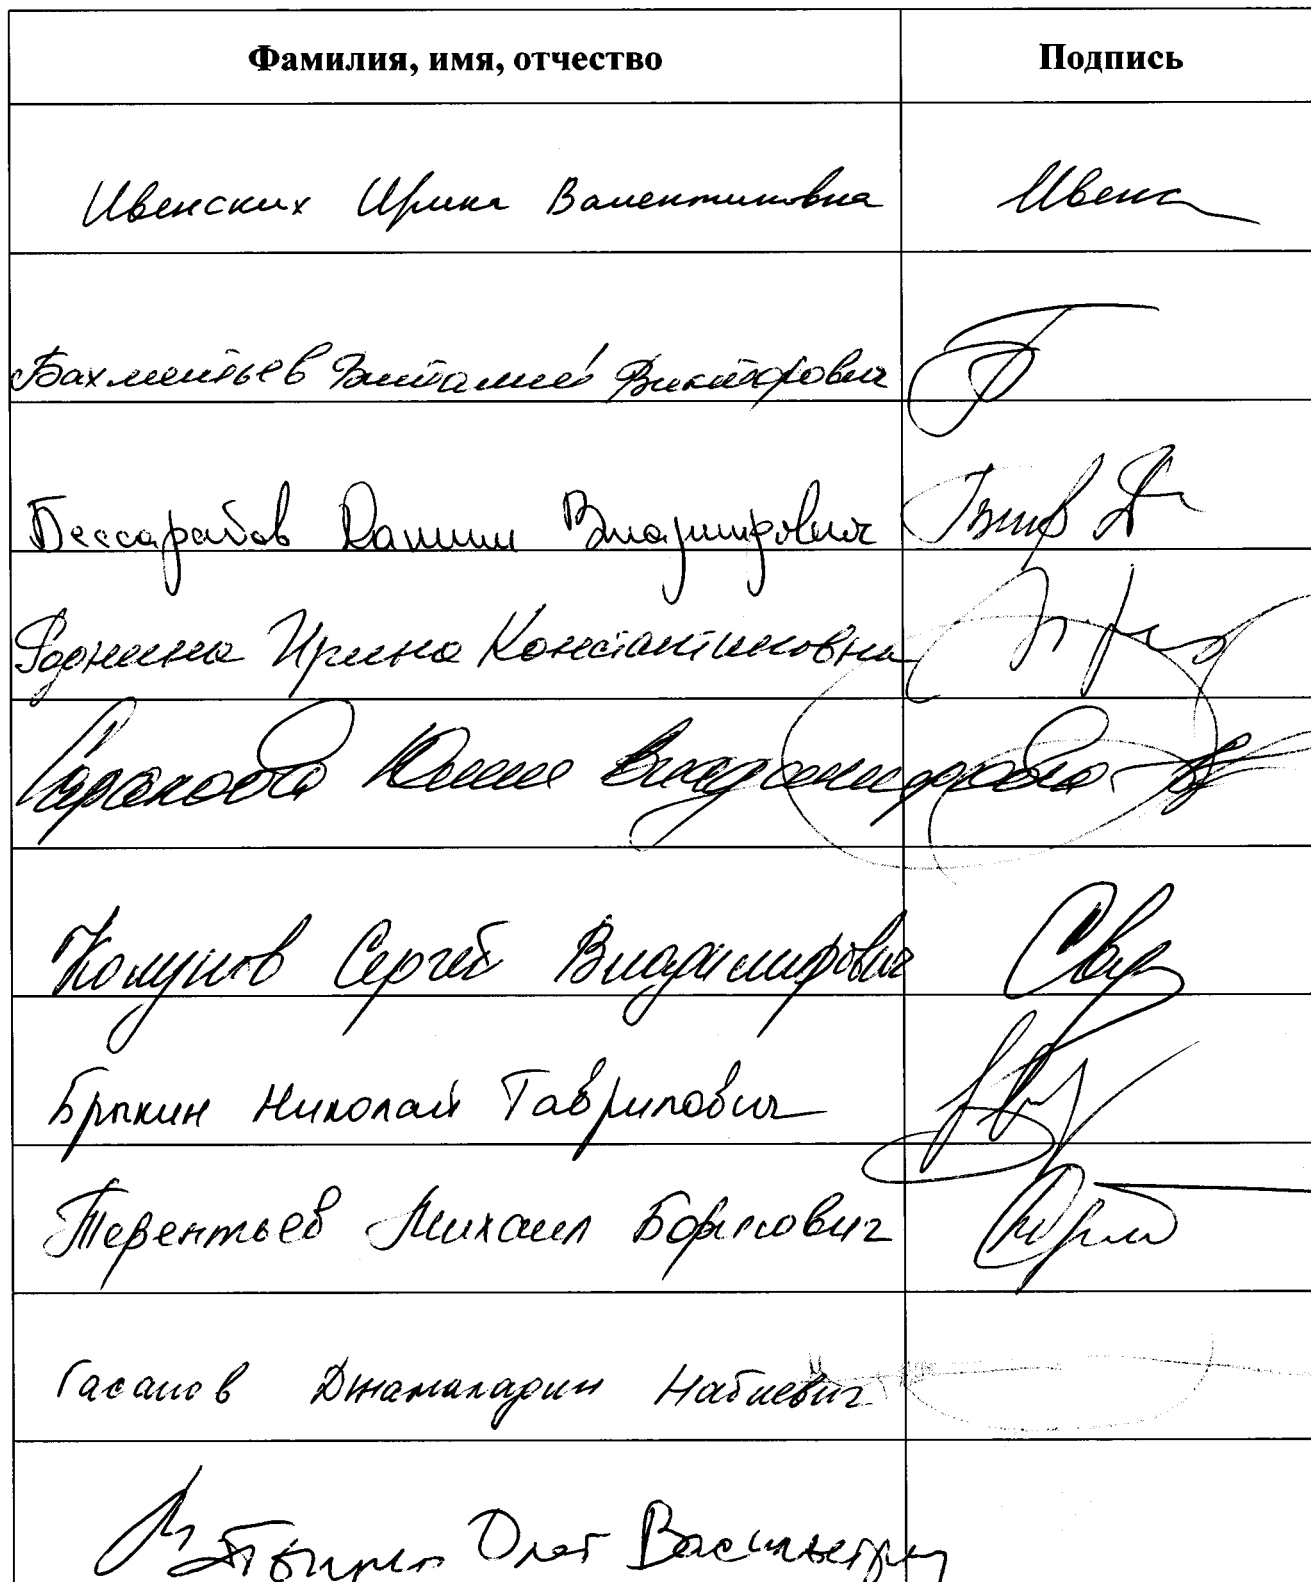 Фамилия, имя, отчество Подпись
Ивенских Ирина Валентиновна Ивенс
Бахметьев Виталий Викторович
Бессарабов Даниил Владимирович
Роднина Ирина Константиновна
Сараностова Юлия Владимировна
Колунов Сергей Владимирович
Брыкин Николай Гаврилович
Терентьев Михаил Борисович
Гасанов Джамаладин Набиевич
Олег Васильевич